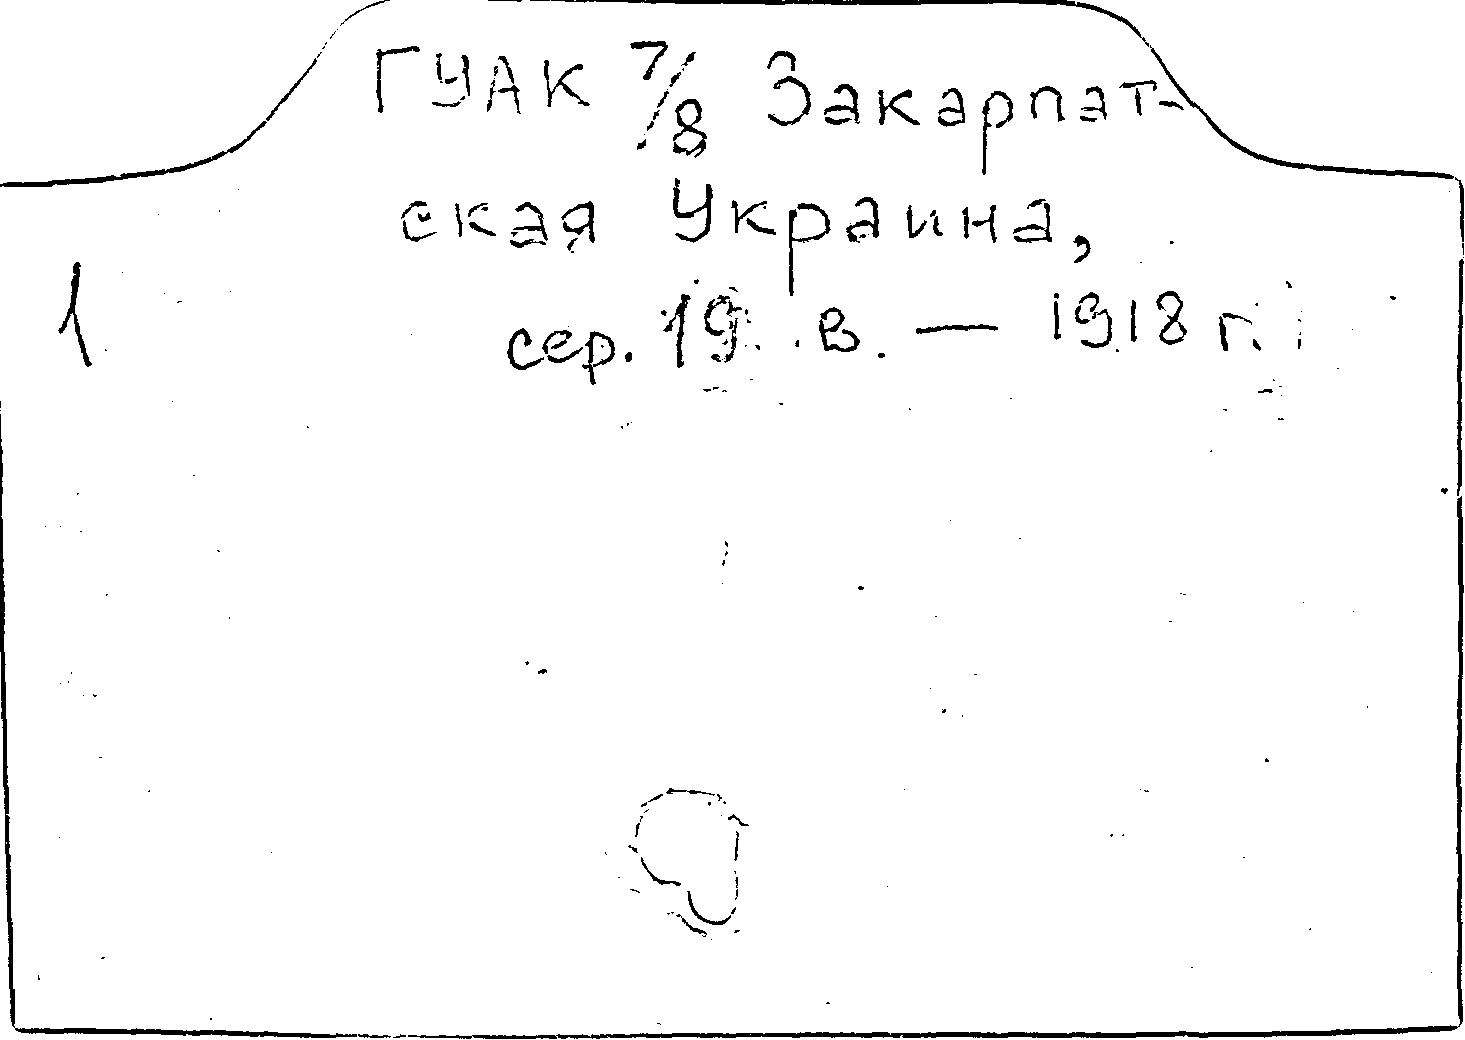 ГУАК 7/8 Закарпат-
ская Украина,
1
сер. 19 в. — 1918 г.